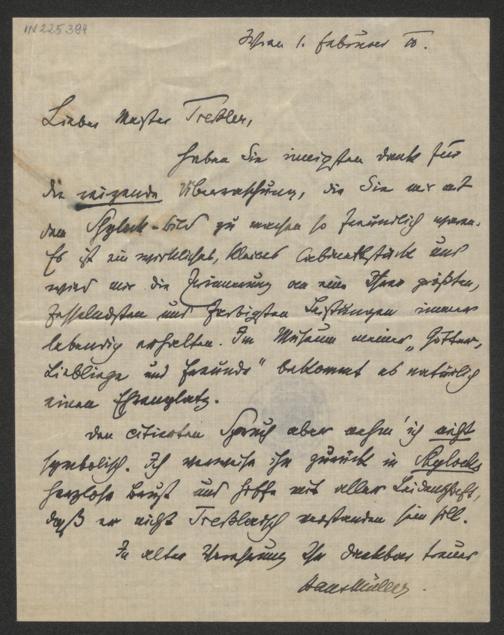 IN 225394
Wien 1. Februar 10.
Lieber Meister Treßler,
haben Sie innigsten Dank für
die reizende Überraschung, die Sie mir mit
dem Shylock-Bild zu machen so freundlich waren.
Es ist ein wirkliches, kleines Cabinettstück und
wird mir die Erinnerung an eine Ihrer größten,
fesselndsten und farbigsten Leistungen immer
lebendig erhalten. Im Museum meiner „Götter,
Lieblinge und Freunde" bekommt es natürlich
einen Ehrenplatz.
Den citierten Spruch aber nehm' ich nicht
symbolisch. Ich verweise ihn zurück in Shylocks
herzlose Brust und hoffe mit aller Leidenschaft,
daß er nicht Treßlerisch verstanden sein soll.
In alter Verehrung Ihr dankbar treuer
Hans Müller.